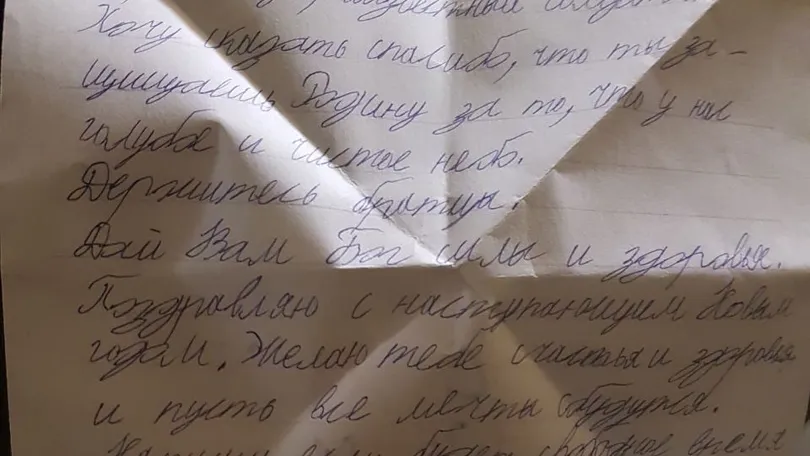 Хочу сказать спасибо, что ты за-
щищаешь Родину за то, что у нас
голубое и чистое небо.
Держитесь братцы.
Дай Вам Бог силы и здоровья.
Поздравляю с наступающим Новым
годом. Желаю тебе счастья и здоровья
и пусть все мечты сбудутся.
если будет свободное время